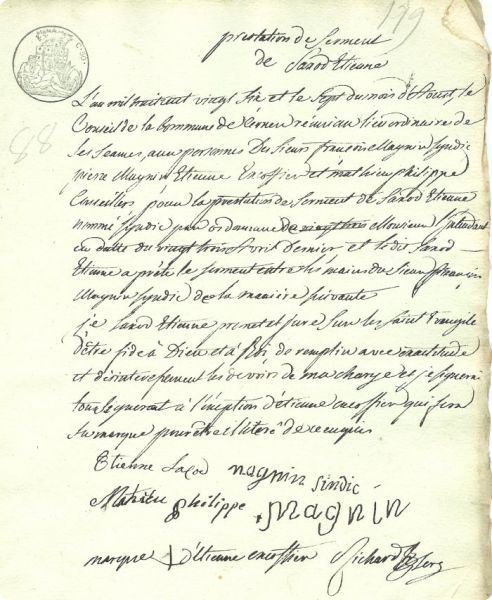 179
prestation de Serment
de Saxod Etienne
88
L'an mil huit cent vingt Six et le Sept du mois d'Aoust, le
Conseil de la Commune de réuni au lieu ordinaire de
Ses Seances, aux personnes des Sieurs françois Magnin Syndic
pierre Magnin Etienne et mathieu philippe
Conseillers pour la prestation de Serment de Saxod Etienne
nommé Syndic par ordonnance de vingt trois Monsieur
en datte du vingt trois Avril dernier et le dit Saxod
Etienne a prêté le Serment entre les mains du Sieur françois
Magnin Syndic de la maniere Suivante
je Saxod Etienne promet et jure Sur les Saint Evangile
d'être fidel à Dieu et à de remplir avec exactitude
et désintéressement les devoirs de ma charge et je
tous à d'étienne qui fera
Sa marque pour être illiteré de ce
Etienne Saxod magnin sindic
Mathieu philippe magnin
marque d'étienne Richard